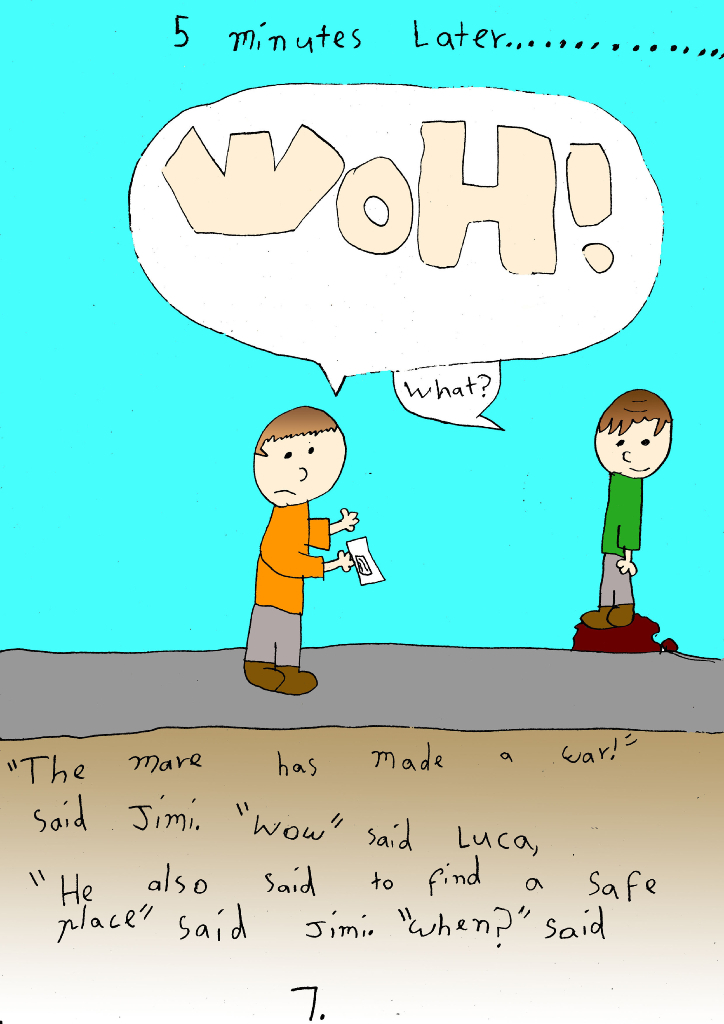 5 minutes Later..................
WOH!
What?
"The mare has made a war!"
said Jimi. "Wow" said Luca,
"He also said to find a safe
place" said Jimi. "when?" said
7.